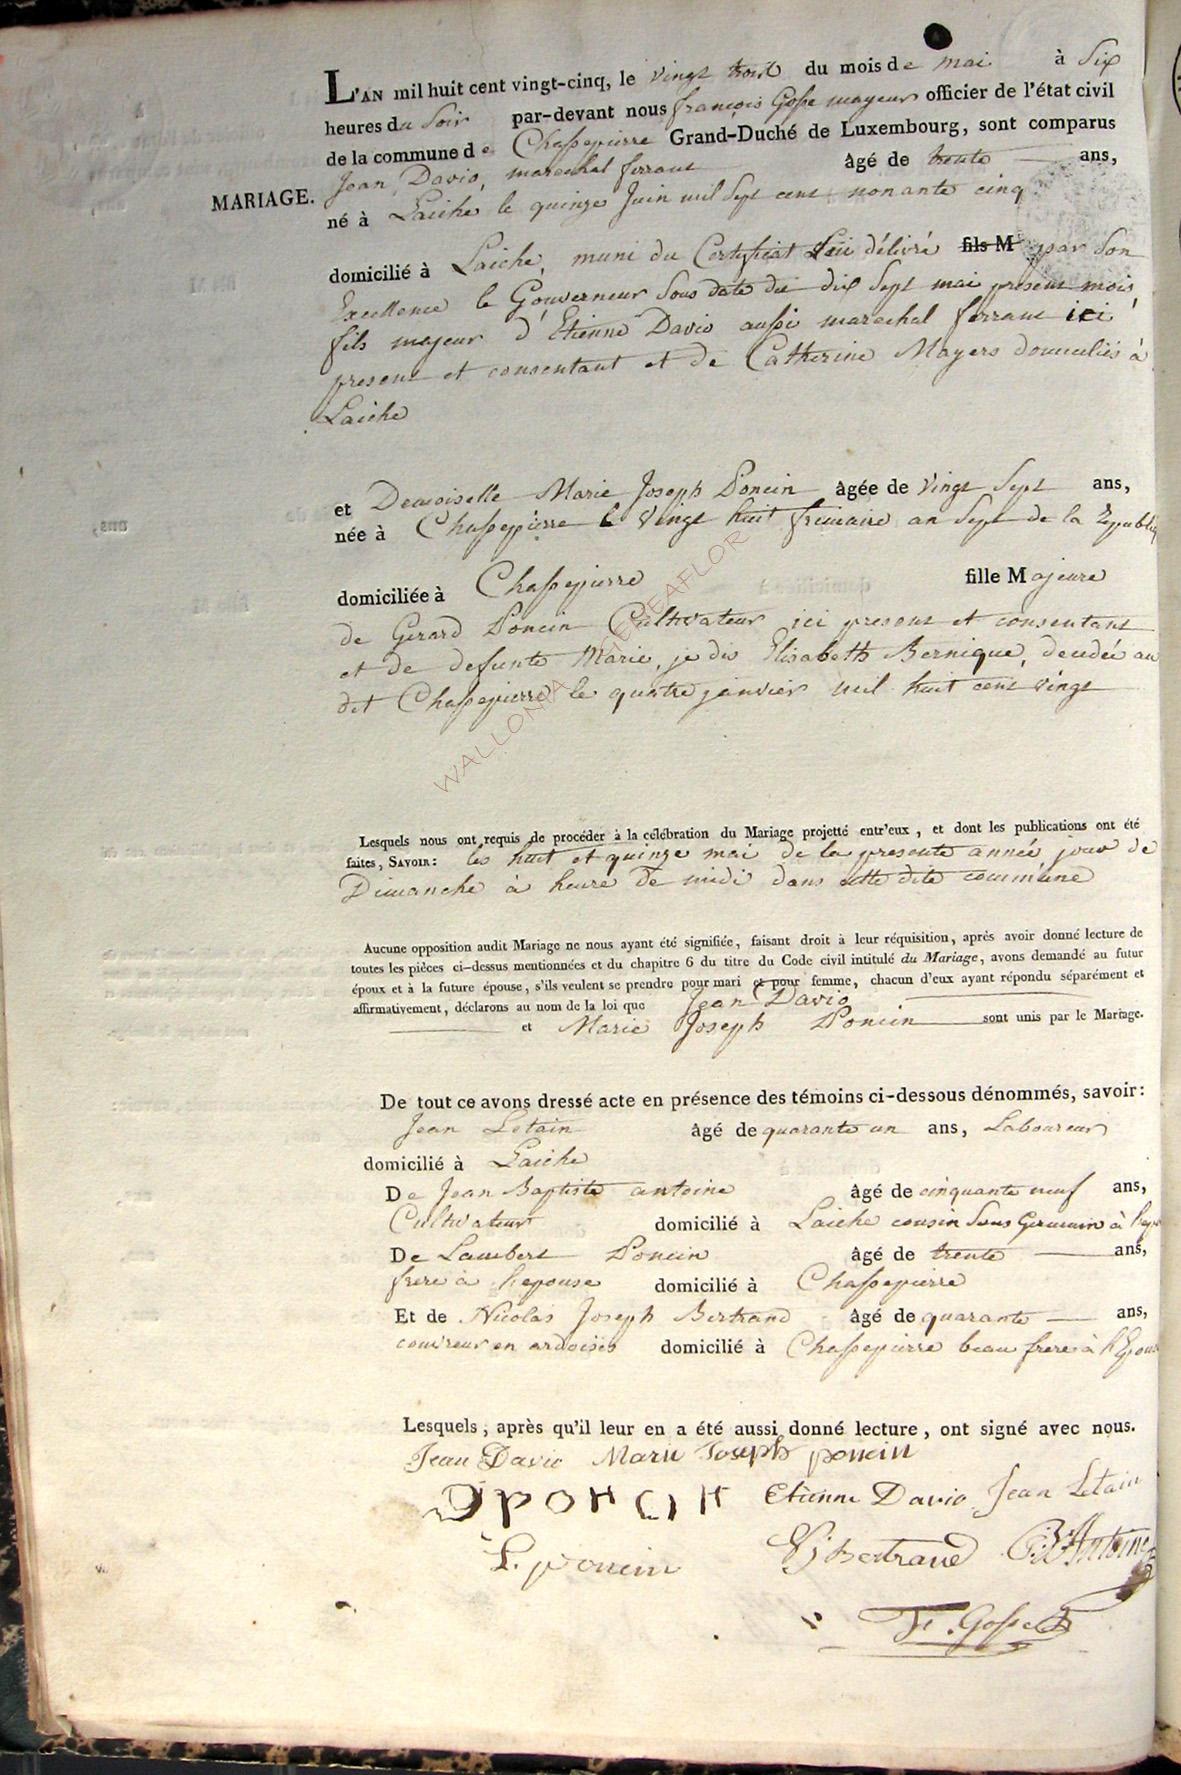 L'AN mil huit cent vingt-cinq, le vingt trois du mois de mai à six
heures du soir par-devant nous françois Gosse mayeur officier de l'état civil
de la commune de Chassepierre Grand-Duché de Luxembourg, sont comparus
Jean David, marechal ferrant âgé de trente ans,
MARIAGE.
né à Laiche le quinze Juin mil sept cent nonante cinq
domicilié à Laiche, muni du Certificat délivré fils M par Son
Excellence le Gouverneur sous date du dix sept mai present mois,
fils majeur d'Etienne David aussi marechal ferrant ici
present et consentant et de Catherine Mayers domiciliés à
Laiche
et Demoiselle Marie Joseph Poncin âgée de vingt sept ans,
née à Chassepierre le vingt huit frimaire an sept de la republiq
domiciliée à Chassepierre fille Majeure
de Gerard Poncin Cultivateur ici present et consentant
et de defunte Marie, je dis Elisabeth Bernique, decedée au
dit Chassepierre le quatre janvier mil huit cent vingt
WALLONIA GENEAFLOR
Lesquels nous ont requis de procéder à la célébration du Mariage projetté entr'eux, et dont les publications ont été
faites, SAVOIR: les huit et quinze mai de la presente année jour de
Dimanche à heure de midi dans cette dite commune
Aucune opposition audit Mariage ne nous ayant été signifiée, faisant droit à leur réquisition, après avoir donné lecture de
toutes les pièces ci-dessus mentionnées et du chapitre 6 du titre du Code civil intitulé du Mariage, avons demandé au futur
époux et à la future épouse, s'ils veulent se prendre pour mari et pour femme, chacun d'eux ayant répondu séparément et
affirmativement, déclarons au nom de la loi que Jean David
et Marie Joseph Poncin sont unis par le Mariage.
De tout ce avons dressé acte en présence des témoins ci-dessous dénommés, savoir:
Jean Letain âgé de quarante un ans, Laboureur
domicilié à Laiche
De Jean Baptiste antoine âgé de cinquante neuf ans,
Cultivateur domicilié à Laiche cousin sous Germain à l'epo
De Lambert Poncin âgé de trente ans,
frere à l'epouse domicilié à Chassepierre
Et de Nicolas Joseph Bertrand âgé de quarante ans,
couvreur en ardoises domicilié à Chassepierre beau frere à l'Epous
Lesquels, après qu'il leur en a été aussi donné lecture, ont signé avec nous.
Jean David Marie Joseph poncin
G PONCIN Etienne David Jean Letain
L. poncin NJ Bertrand JB Antoine
F. Gosse